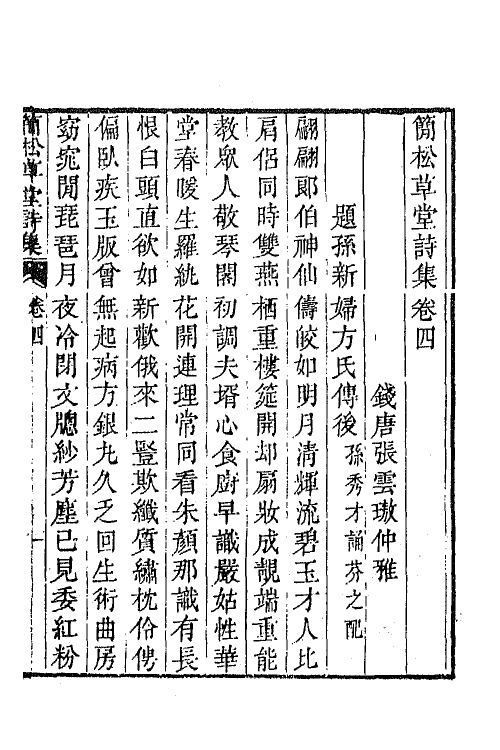 簡松草堂詩集卷四
錢唐張雲璈仲雅
題孫新婦方氏傳後孫秀才誦芬之配
翩翩郞伯神仙儔皎如明月淸輝流碧玉才人比
肩侶同時雙燕栖重樓筵開却扇妝成靚端重能
敎眾人敬琴閑初調夫壻心食廚早識嚴姑性華
堂春暖生羅紈花開連理常同看朱顏那識有長
恨白頭直欲如新歡俄來二豎欺纖質繡枕伶俜
偏臥疾玉版曾無起病方銀丸久乏回生術曲房
窈窕閒琵琶月夜冷閉文牕紗芳塵已見委紅粉
簡松草堂詩集 卷四 一